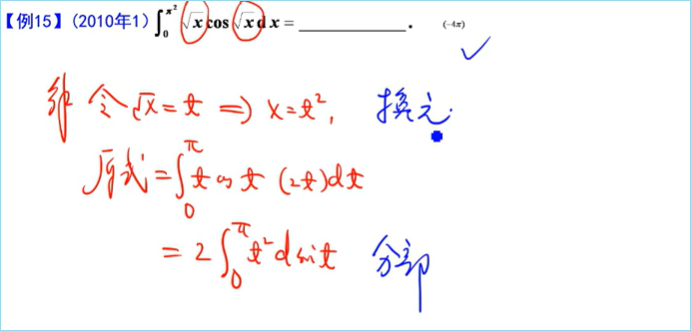 【例15】（2010年1）∫₀^{π²} √x cos √x d x = ____________. (-4π)
解 令 √x = t ⇒ x = t², 换元.
原式 = ∫₀^π t cos t (2t) dt
= 2 ∫₀^π t² d sin t 分部